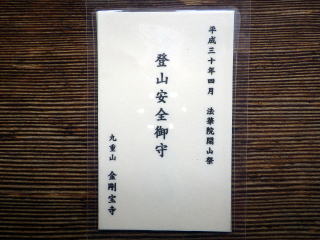 平成三十年四月 法華院開山祭
登山安全御守
九重山 金剛宝寺